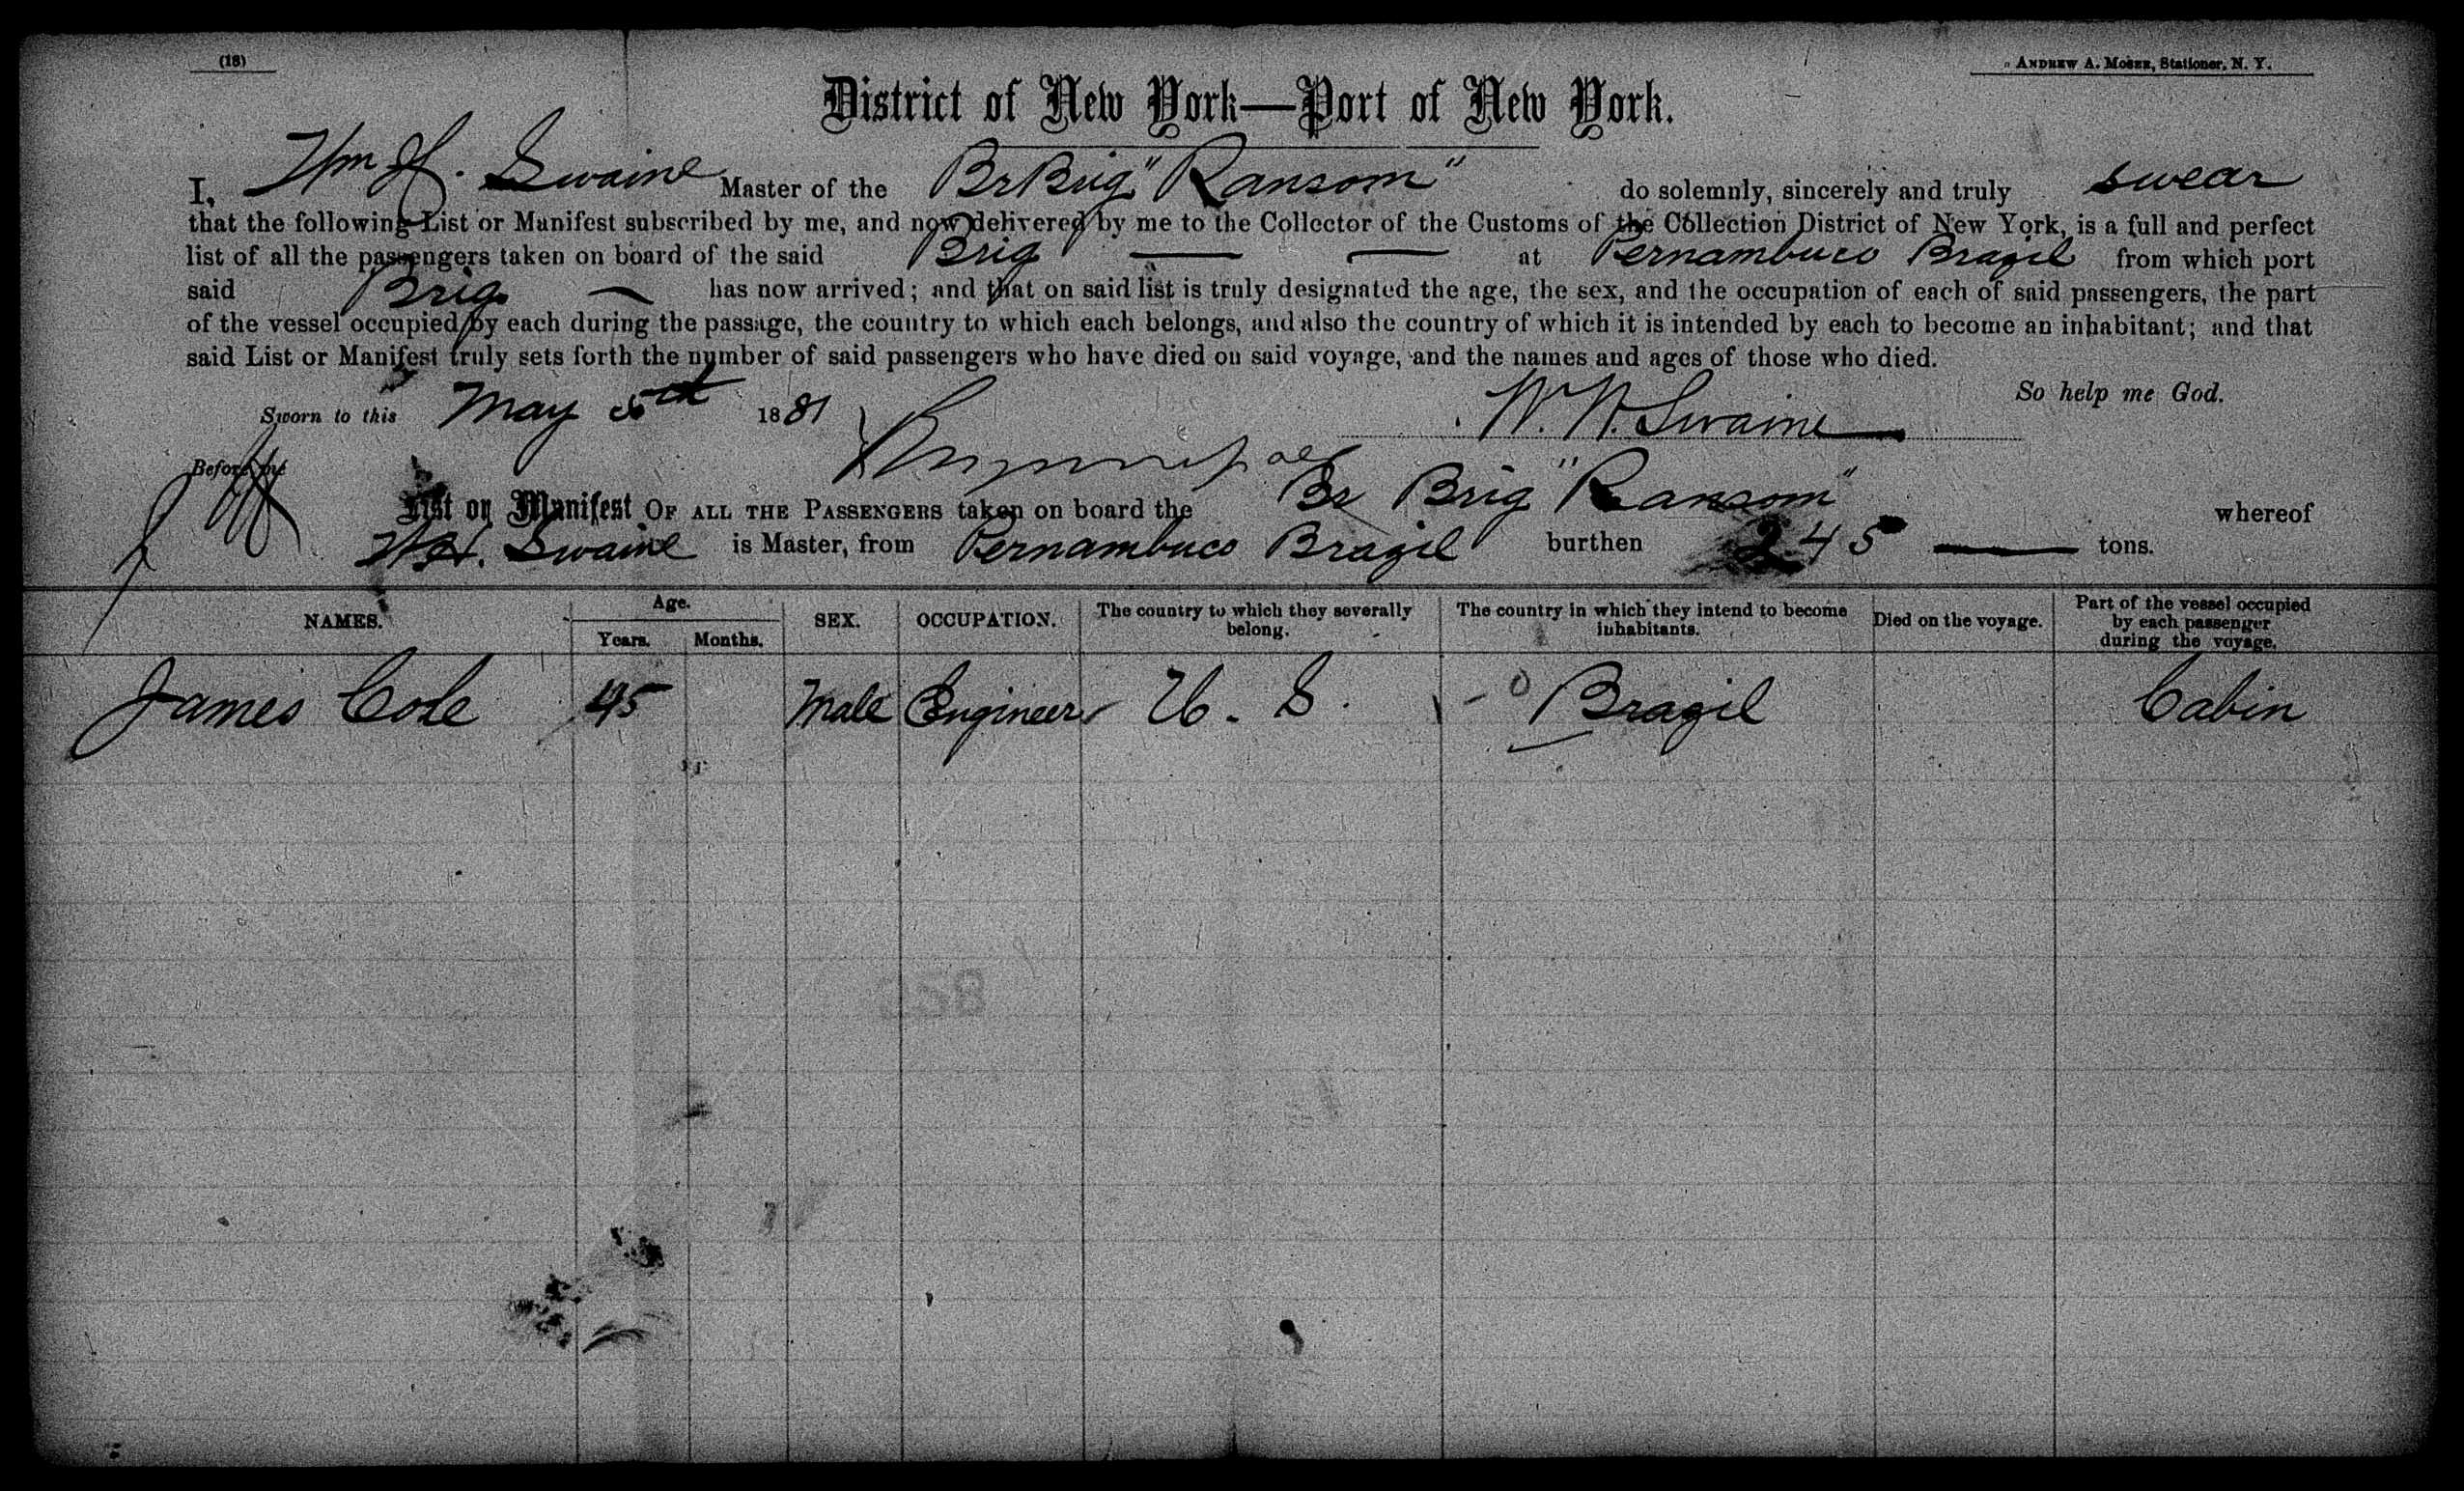 (18)
ANDREW A. MOSER, Stationer, N. Y.
District of New York—Port of New York.
I, Wm H. Swaine Master of the Br Brig "Ransom" do solemnly, sincerely and truly swear
that the following List or Manifest subscribed by me, and now delivered by me to the Collector of the Customs of the Collection District of New York, is a full and perfect
list of all the passengers taken on board of the said Brig at Pernambuco Brazil from which port
said Brig has now arrived; and that on said list is truly designated the age, the sex, and the occupation of each of said passengers, the part
of the vessel occupied by each during the passage, the country to which each belongs, and also the country of which it is intended by each to become an inhabitant; and that
said List or Manifest truly sets forth the number of said passengers who have died on said voyage, and the names and ages of those who died.
So help me God.
Sworn to this May 5th 1881 W. H. Swaine
Before me
List or Manifest OF ALL THE PASSENGERS taken on board the Br Brig "Ransom" whereof
W H. Swaine is Master, from Pernambuco Brazil burthen 245 tons.
NAMES. Age. Years. Months. SEX. OCCUPATION. The country to which they severally belong. The country in which they intend to become inhabitants. Died on the voyage. Part of the vessel occupied by each passenger during the voyage.
James Cole 45 Male Engineer U. S. Brazil Cabin